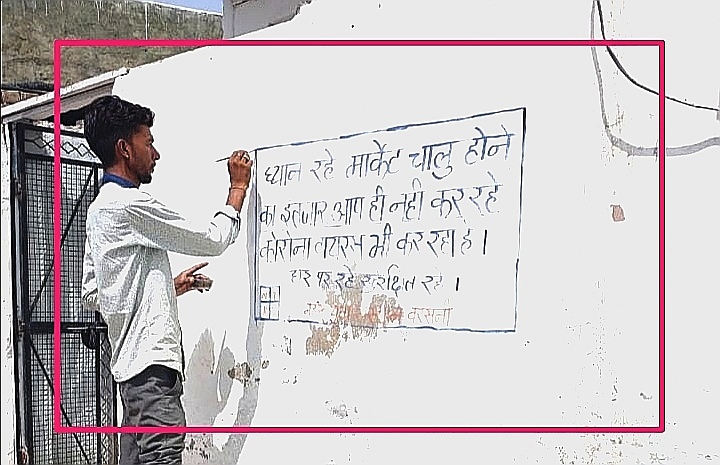 ध्यान रहे मार्केट चालु होने
का इंतजार आप ही नही कर रहे
कोरोना वायरस भी कर रहा है ।
घर पर रहे सुरक्षित रहे ।